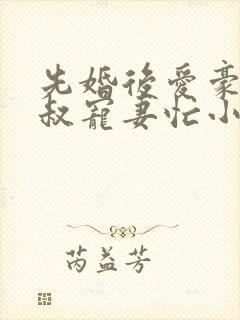 先婚後愛豪
叔寵妻忙小
芮益芳